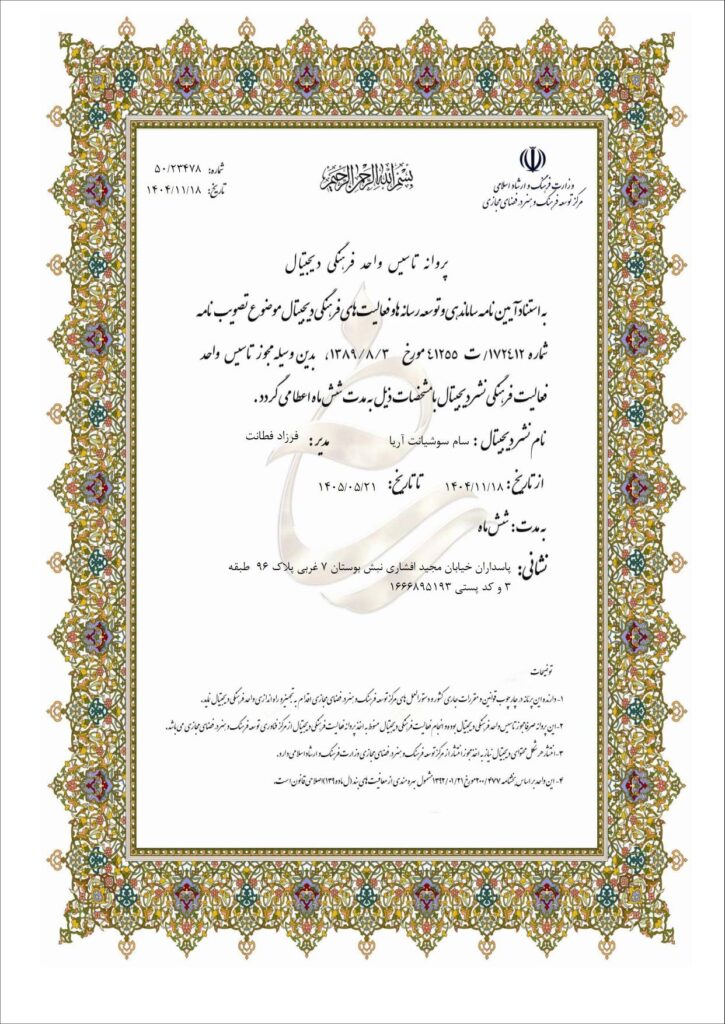 وزارت فرهنگ و ارشاد اسلامی
مرکز توسعه فرهنگ و هنر در فضای مجازی
بسم الله الرحمن الرحیم
شماره: ۵۰/۲۳۴۷۸
تاریخ: ۱۴۰۴/۱۱/۱۸
پروانه تاسیس واحد فرهنگی دیجیتال
به استناد آیین نامه ساماندهی و توسعه رسانه ها و فعالیت های فرهنگی دیجیتال موضوع تصویب نامه
شماره ۱۷۲۴۱۲/ت ۴۱۲۵۵ مورخ ۱۳۸۹/۸/۳، بدین وسیله مجوز تاسیس واحد
فعالیت فرهنگی نشر دیجیتال با مشخصات ذیل به مدت شش ماه اعطا می گردد.
نام نشر دیجیتال: سام سوشیانت آریا مدیر: فرزاد فطانت
از تاریخ: ۱۴۰۴/۱۱/۱۸ تا تاریخ: ۱۴۰۵/۰۵/۲۱
به مدت: شش ماه
نشانی: پاسداران خیابان مجید افشاری نبش بوستان ۷ غربی پلاک ۹۶ طبقه
۳ و کد پستی ۱۶۶۶۸۹۵۱۹۳
توضیحات
۱- دارنده این برنامه در چارچوب قوانین و مقررات جاری کشور و دستورالعمل های مرکز توسعه فرهنگ و هنر در فضای مجازی اقدام به تجهیز و راه اندازی واحد فرهنگی دیجیتال نماید.
۲- این پروانه صرفا مجوز تاسیس واحد فرهنگی دیجیتال بوده و انجام فعالیت فرهنگی دیجیتال منوط به اخذ پروانه فعالیت فرهنگی دیجیتال از مرکز فناوری توسعه فرهنگ و هنر در فضای مجازی می باشد.
۳- انتشار هر شکل محتوای دیجیتال نیاز به اخذ مجوز انتشار از مرکز توسعه فرهنگ و هنر در فضای مجازی وزارت فرهنگ و ارشاد اسلامی دارد.
۴- این واحد بر اساس بخشنامه ۲۰۰/۴۷۷ مورخ ۱۳۹۲/۰۱/۲۱ مشمول بهره مندی از معافیت های بند (ل) ماده ۱۳۹ اصلاحی قانون است.